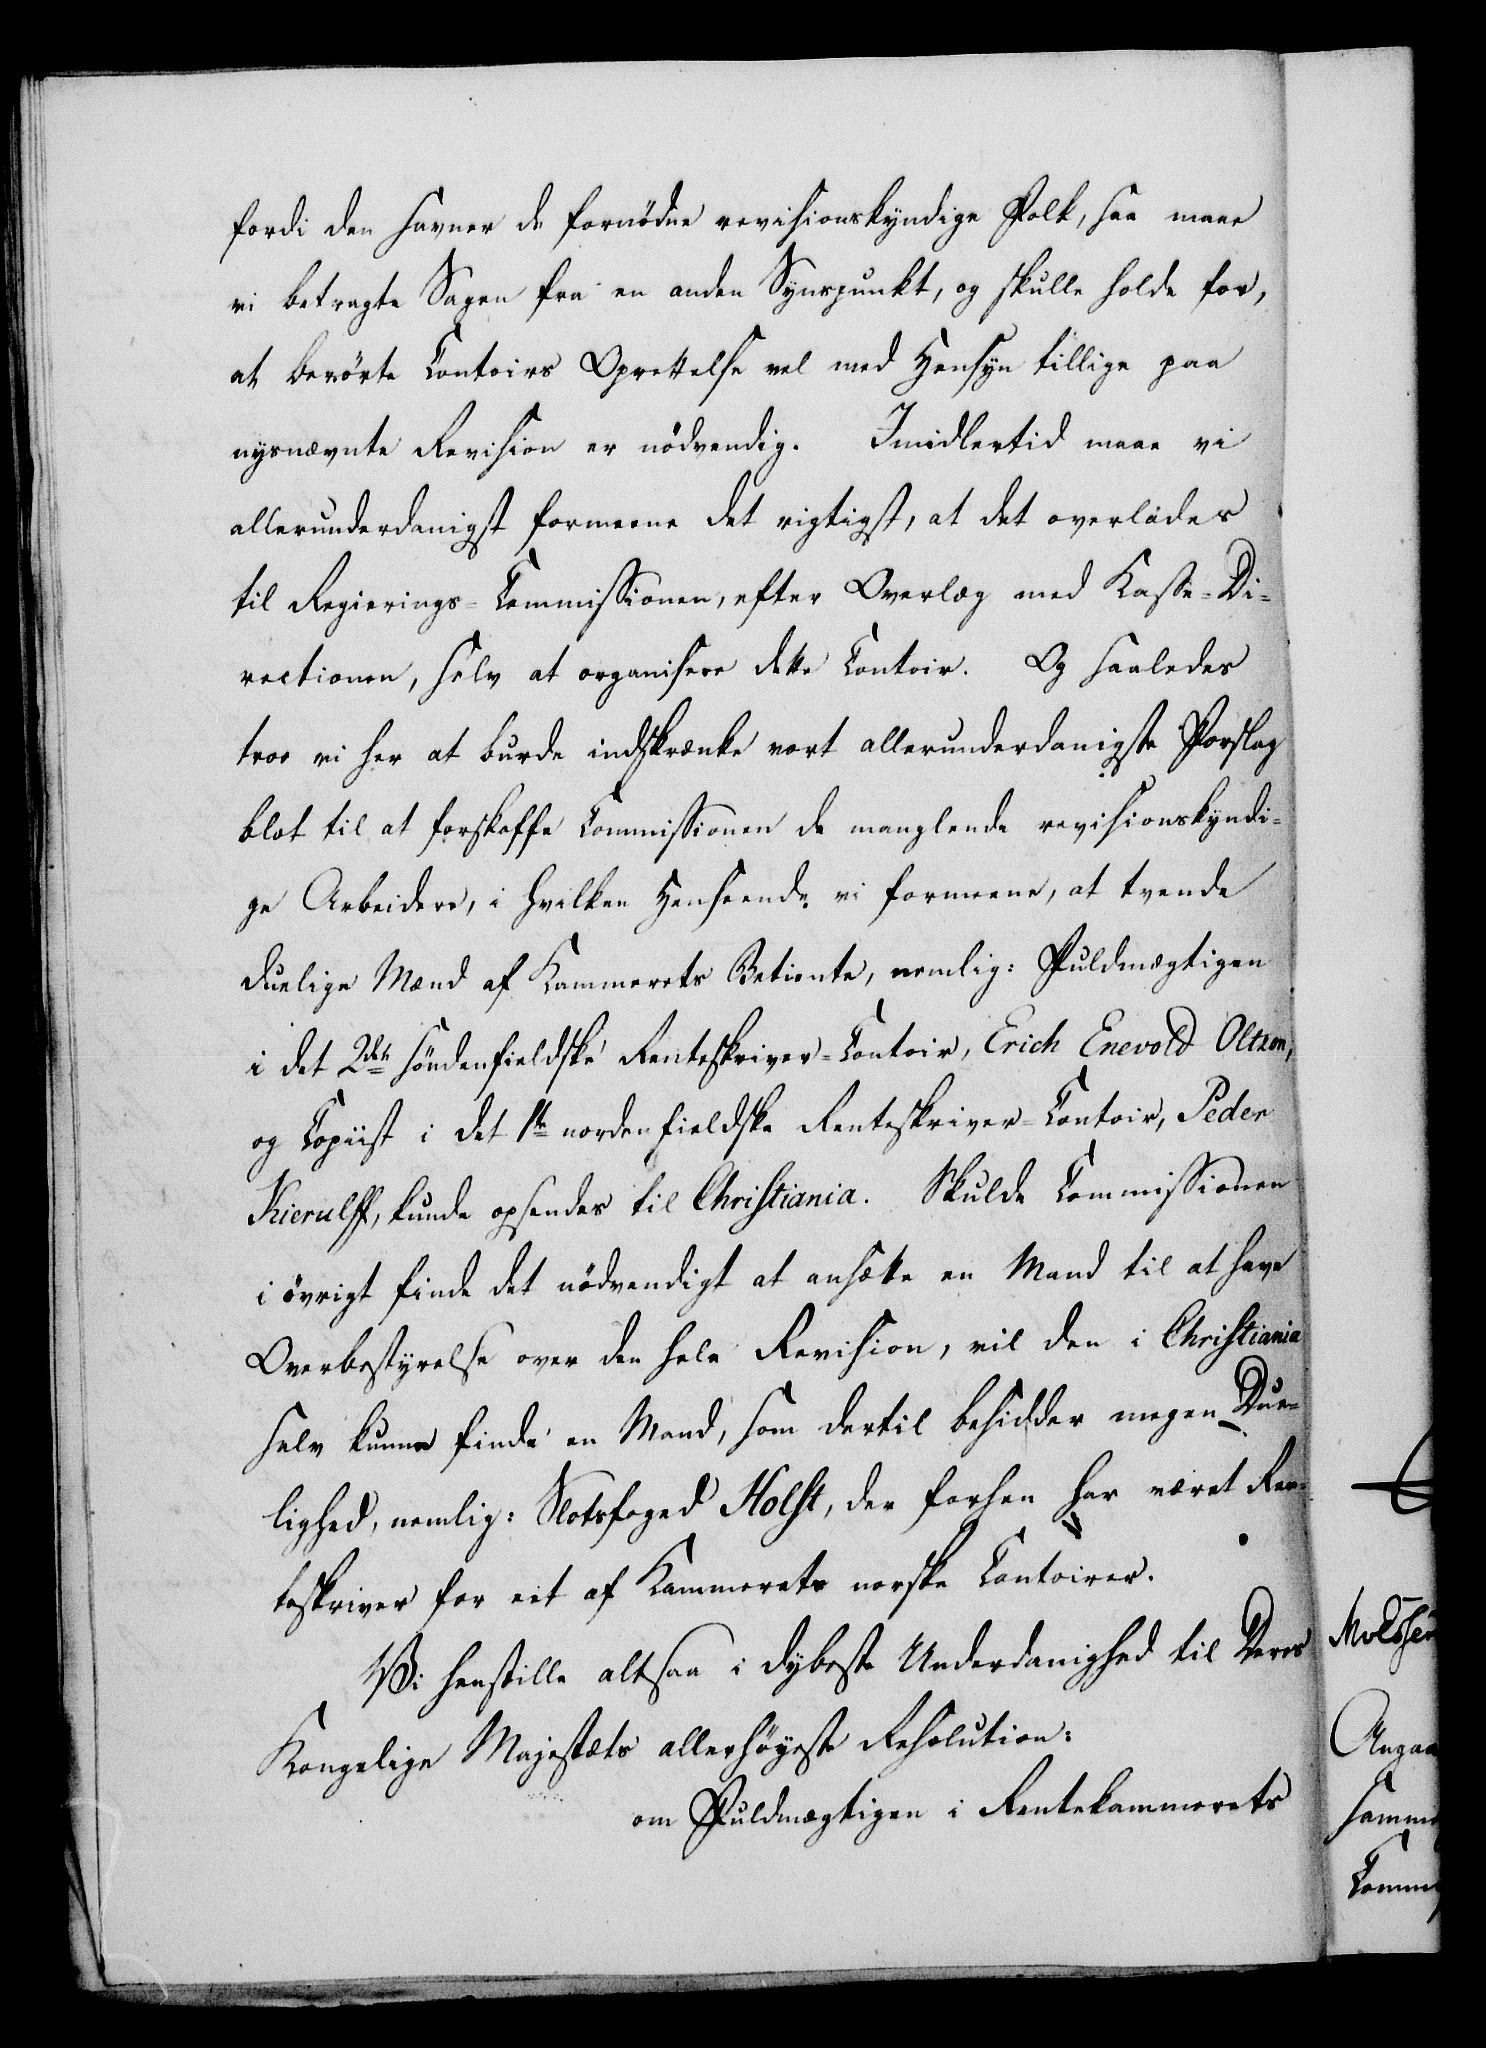 fordi den savner de fornödne revisionskyndige Folk, saa maae
vi betragte Sagen fra en anden Synspunkt, og skulle holde for,
at berörte Contoirs Oprettelse vel med Hensyn tillige paa
nysnævnte Revision er nödvendig. Imidlertid maae vi
allerunderdanigst formeene det rigtigst, at det overlades
til Regierings-Commissionen, efter Overlæg med Kasse-Di-
rectionen, selv at organisere dette Contoir. Og saaledes
troe vi her at burde indskrænke vort allerunderdanigste Forslag
blot til at forskaffe Commissionen de manglende revisionskyndi-
ge Arbeidere, i hvilken Henseende vi formeene, at tvende
duelige Mænd af Kammerets Betiente, nemlig: Fuldmægtigen
i det 2det söndenfieldske Renteskriver-Contoir, Erich Enevold Oltzon,
og Copiist i det 1te nordenfieldske Renteskriver-Contoir, Peder
Kierulff, kunde opsendes til Christiania. Skulde Commissionen
i övrigt finde det nödvendigt at ansætte en Mand til at have
Overbestyrelse over den hele Revision, vil den i Christiania
selv kunne finde en Mand, som dertil besidder megen Due-
lighed, nemlig: Slotsfoged Holst, der forhen har været Ren-
teskriver for eet af Kammerets norske Contoirer.
Vi henstille altsaa i dybeste Underdanighed til Deres
Kongelige Majestæts allerhöyeste Resolution:
om Fuldmægtigen i Rentekammerets
Angaa
samme
Comm